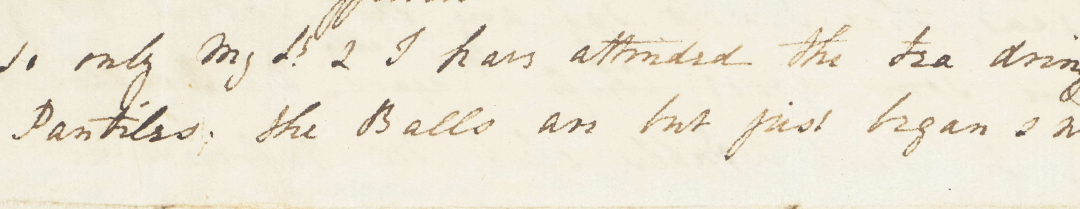 so only My Ld & I have attended the tea drin
Pantiles. the Balls are but just began